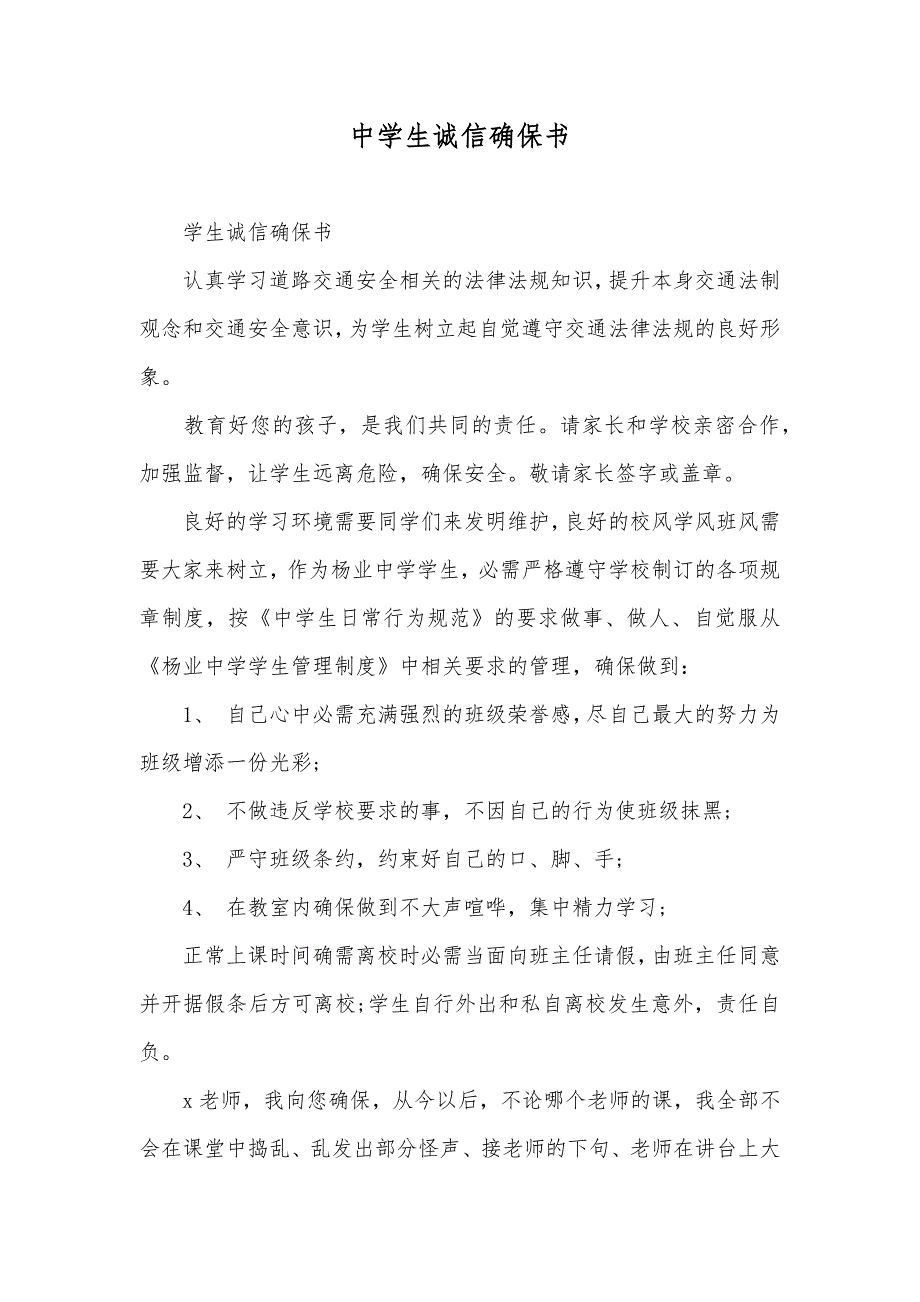 中学生诚信确保书
学生诚信确保书
认真学习道路交通安全相关的法律法规知识，提升本身交通法制
观念和交通安全意识，为学生树立起自觉遵守交通法律法规的良好形
象。
教育好您的孩子，是我们共同的责任。请家长和学校亲密合作，
加强监督，让学生远离危险，确保安全。敬请家长签字或盖章。
良好的学习环境需要同学们来发明维护，良好的校风学风班风需
要大家来树立，作为杨业中学学生，必需严格遵守学校制订的各项规
章制度，按《中学生日常行为规范》的要求做事、做人、自觉服从
《杨业中学学生管理制度》中相关要求的管理，确保做到：
1、 自己心中必需充满强烈的班级荣誉感，尽自己最大的努力为
班级增添一份光彩;
2、 不做违反学校要求的事，不因自己的行为使班级抹黑;
3、 严守班级条约，约束好自己的口、脚、手;
4、 在教室内确保做到不大声喧哗，集中精力学习;
正常上课时间确需离校时必需当面向班主任请假，由班主任同意
并开据假条后方可离校;学生自行外出和私自离校发生意外，责任自
负。
x 老师，我向您确保，从今以后，不论哪个老师的课，我全部不
会在课堂中捣乱、乱发出部分怪声、接老师的下句、老师在讲台上大